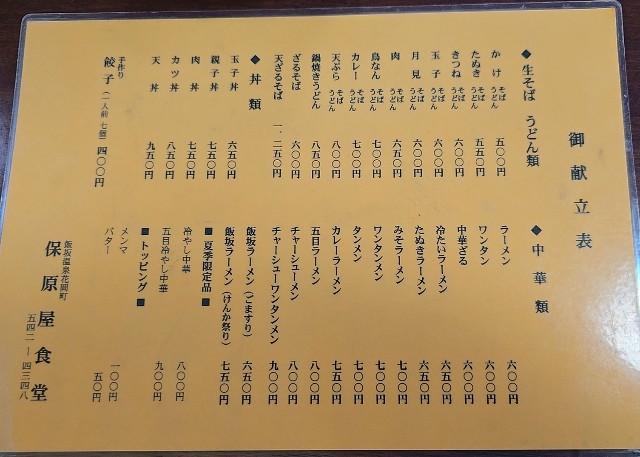 御献立表
◆生そば うどん類
かけ そば うどん 五〇〇円
たぬき そば うどん 五五〇円
きつね そば うどん 六〇〇円
玉子 そば うどん 六〇〇円
月見 そば うどん 六〇〇円
肉 そば うどん 六五〇円
鳥なん そば うどん 七〇〇円
カレー そば うどん 七〇〇円
天ぷら そば うどん 八〇〇円
鍋焼きうどん 八五〇円
ざるそば 六〇〇円
天ざるそば 一、二五〇円
◆丼類
玉子丼 六五〇円
親子丼 七五〇円
肉丼 七五〇円
カツ丼 八五〇円
天丼 九五〇円
手作り
餃子(一人前 七個) 四〇〇円
◆中華類
ラーメン 六〇〇円
ワンタン 六〇〇円
中華ざる 六〇〇円
冷たいラーメン 六五〇円
たぬきラーメン 六五〇円
みそラーメン 七〇〇円
ワンタンメン 七〇〇円
タンメン 七〇〇円
カレーラーメン 七五〇円
五目ラーメン 八〇〇円
チャーシューメン 八〇〇円
チャーシューワンタンメン 九〇〇円
飯坂ラーメン(ごますり) 六五〇円
飯坂ラーメン(けんか祭り) 七五〇円
■夏季限定品■
冷やし中華 八〇〇円
五目冷やし中華 九〇〇円
■トッピング■
メンマ 一〇〇円
バター 五〇円
飯坂温泉花岡町
保原屋食堂
五四二―四三四八